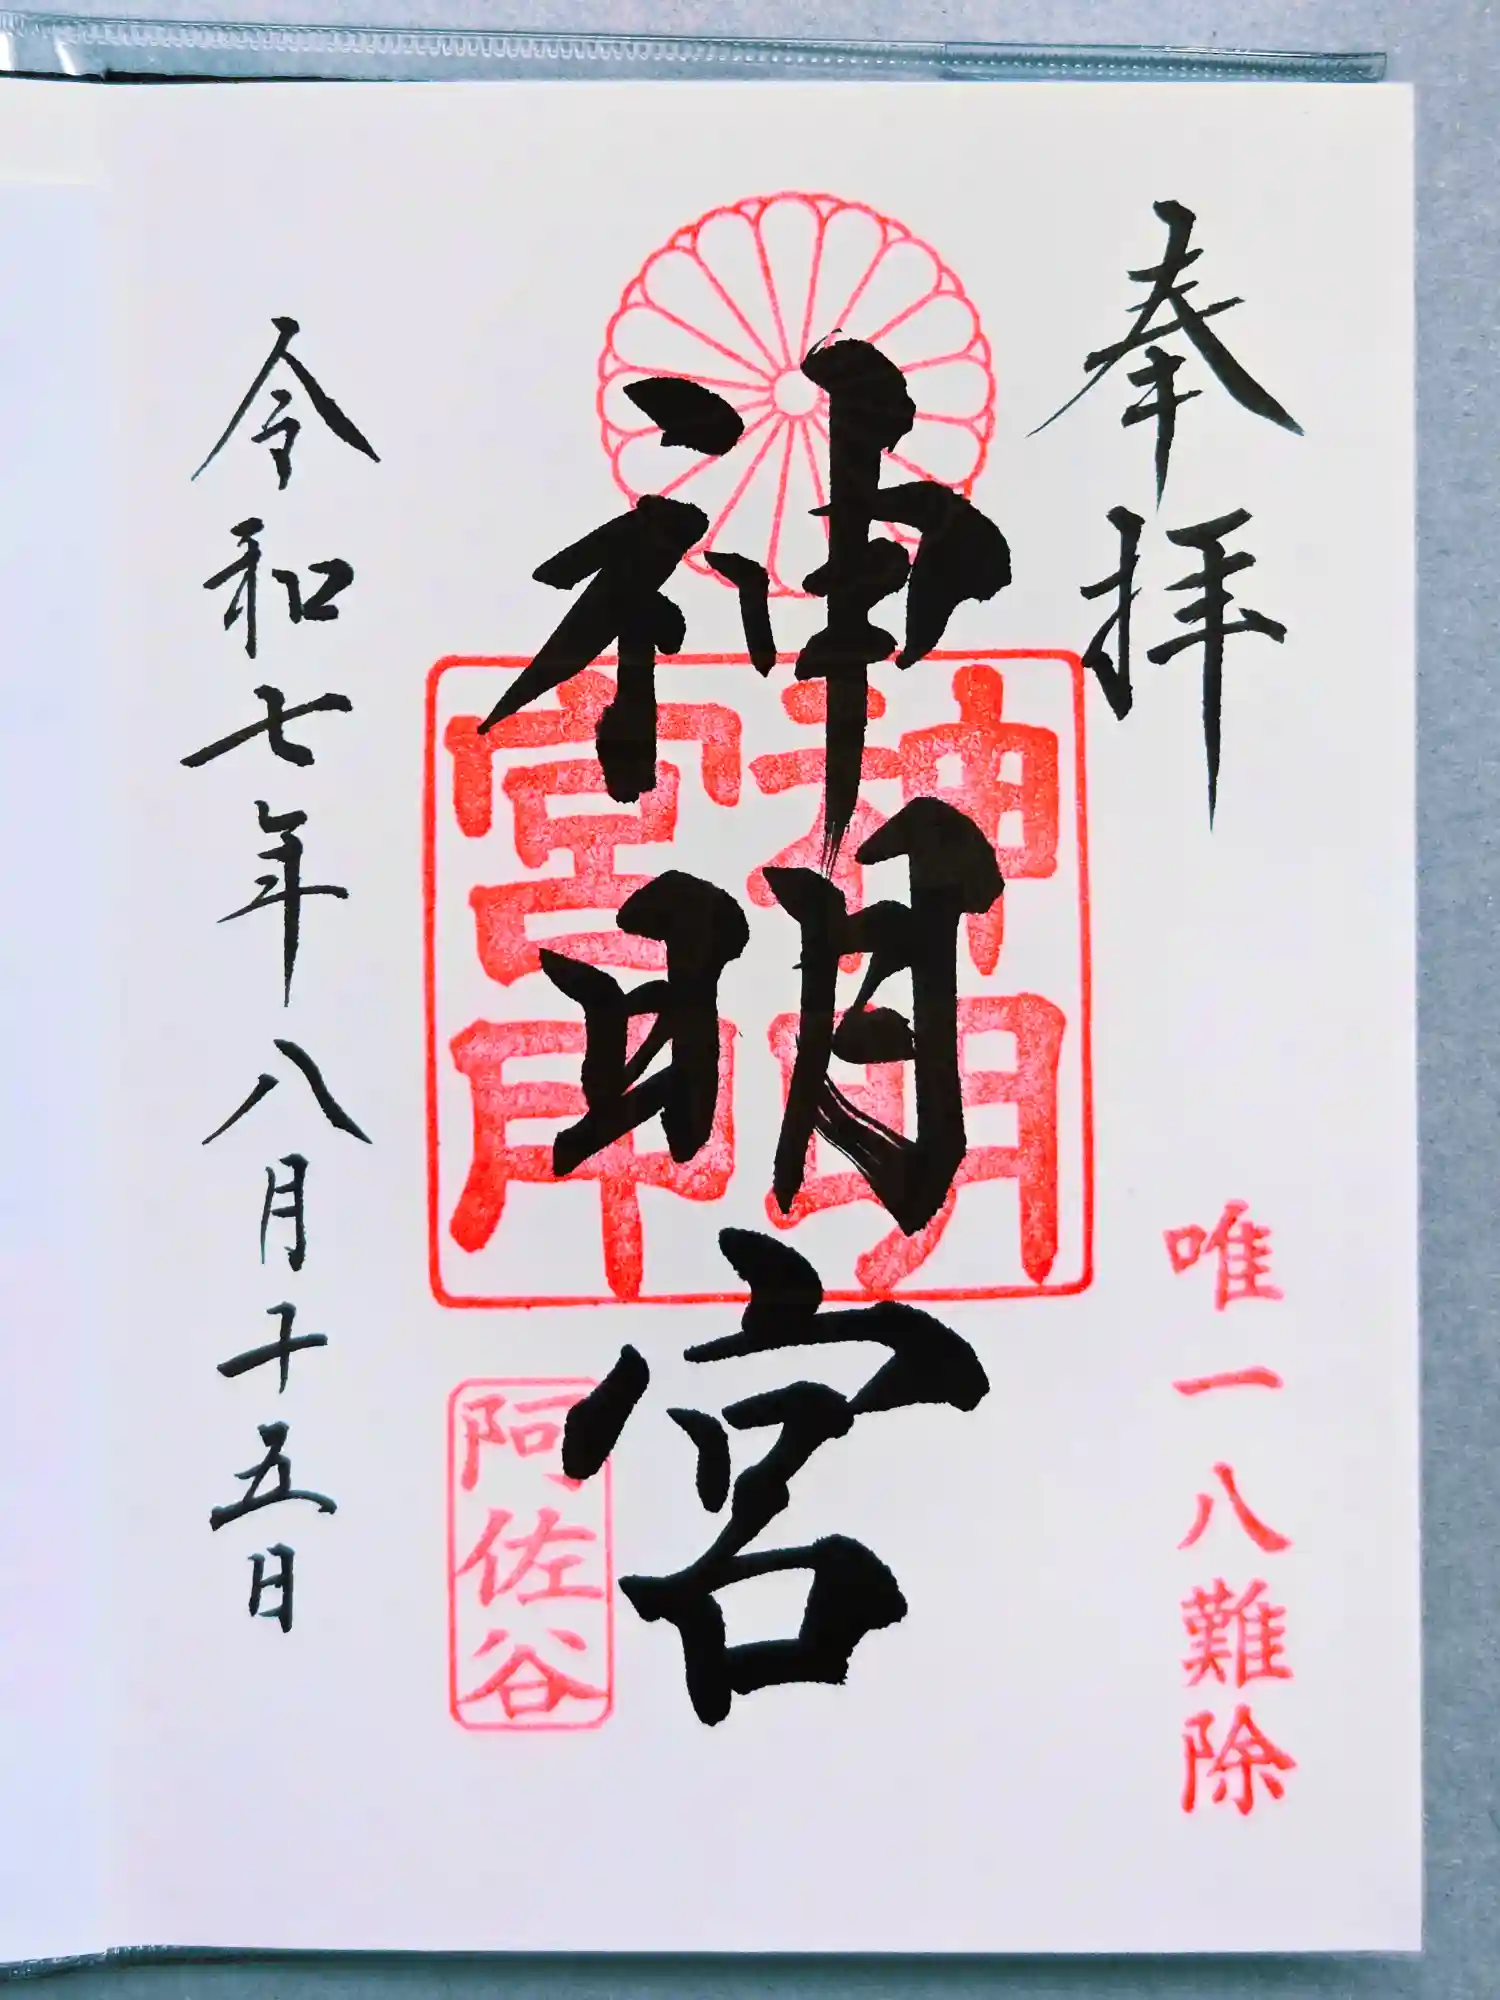 奉拝
唯一八難除
神明宮
神明
宮印
阿佐谷
令和七年八月十五日